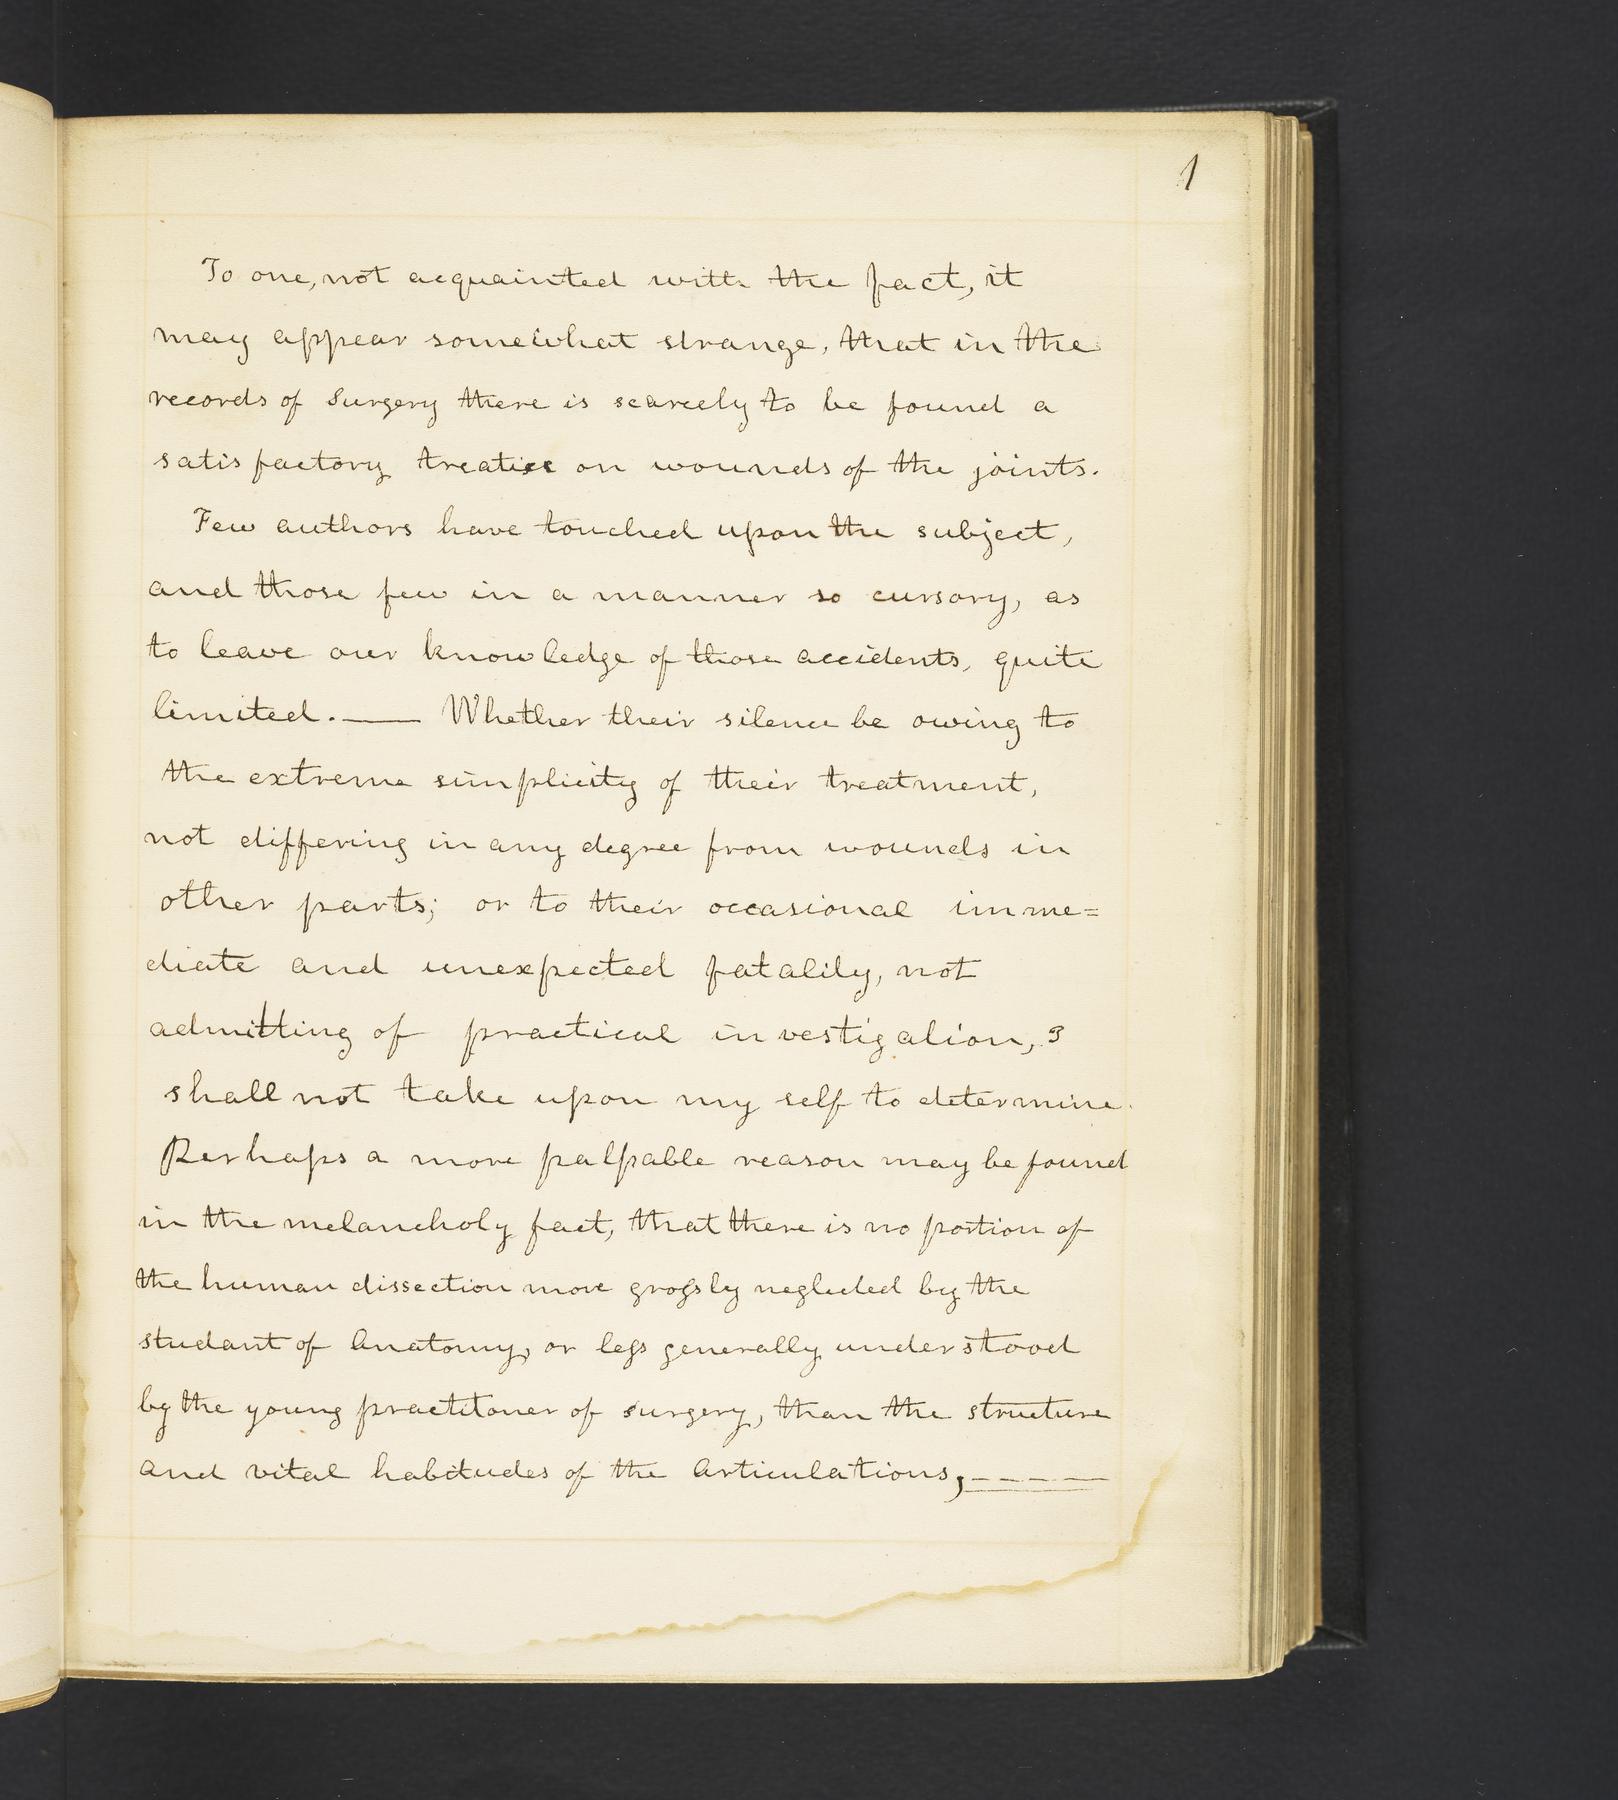 1
To one, not acquainted with the fact, it
may appear somewhat strange, that in the
records of Surgery there is scarcely to be found a
satisfactory treatise on wounds of the joints.
Few authors have touched upon the subject,
and those few in a manner so cursory, as
to leave our knowledge of those accidents, quite
limited. — Whether their silence be owing to
the extreme simplicity of their treatment,
not differing in any degree from wounds in
other parts; or to their occasional imme=
diate and unexpected fatality, not
admitting of practical investigation, I
shall not take upon my self to determine.
Perhaps a more palpable reason may be found
in the melancholy fact, that there is no portion of
the human dissection more grossly neglected by the
studant of Anatomy, or less generally understood
by the young practitoner of surgery, than the structure
and vital habitudes of the Articulations, — — — —